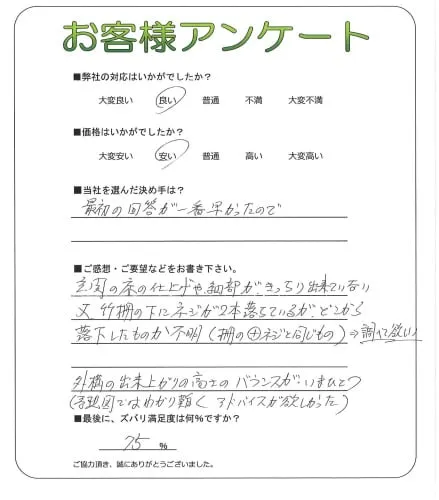 お客様アンケート
■弊社の対応はいかがでしたか？
大変良い 良い 普通 不満 大変不満
■価格はいかがでしたか？
大変安い 安い 普通 高い 大変高い
■当社を選んだ決め手は？
最初の回答が一番早かったので
■ご感想・ご要望などをお書き下さい。
玄関の床の仕上げや、細部が、きっちり出来ていない
又、竹柵の下にネジが2本落ちているが、どこから
落下したものか不明(柵の⊕ネジと同じもの)⇒調べて欲しい
外構の出来上がりの高さのバランスがいまひとつ
(予想図ではわかり難く アドバイスが欲しかった)
■最後に、ズバリ満足度は何%ですか？
75 %
ご協力頂き、誠にありがとうございました。